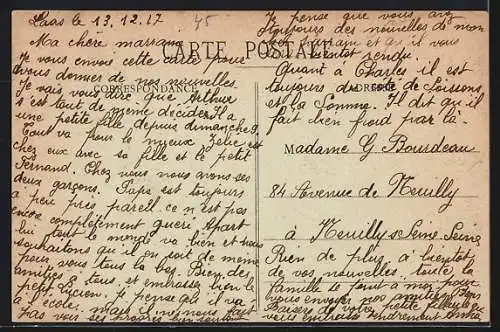 Laas le 13.12.17
45
Ma chère marraine
CARTE POSTALE
CORRESPONDANCE
ADRESSE
Je vous envois cette carte pour
vous donner de nos nouvelles.
Je vais vous dire que Arthur
s'est tout de même décider. Il a
une petite fille depuis dimanche 9.
Tout va pour le mieux
chez eux avec sa fille et le petit
Fernand. Chez vous nous avons ses
deux garçons. Papa est toujours
à peu près pareil ce n'est pas
encore complètement guéri. Apart
lui tout le monde va bien et nous
souhaitons qu'il en soit de même
pour vous tous la bas. Bien des
amitiés à tous et embrasser bien le
petit Lucien. Je pense qu'il va
à l'école, mais il
pas vous
Je pense que vous avez
toujours des nouvelles de mon
et qu'il vous
bientôt rendu.
Quant à Charles il est
toujours du côté de Soissons
et la Somme. Il dit qu'il
fait bien froid par là.
Madame G Bourdeau
84 Avenue de Neuilly
à Neuilly s Seine. Seine
Rien de plus à bientôt
de vos nouvelles. toute la
famille se joint à moi pour
vous envoyer nos amitiés
Baisers de votre petite
vous embrasse tendrement